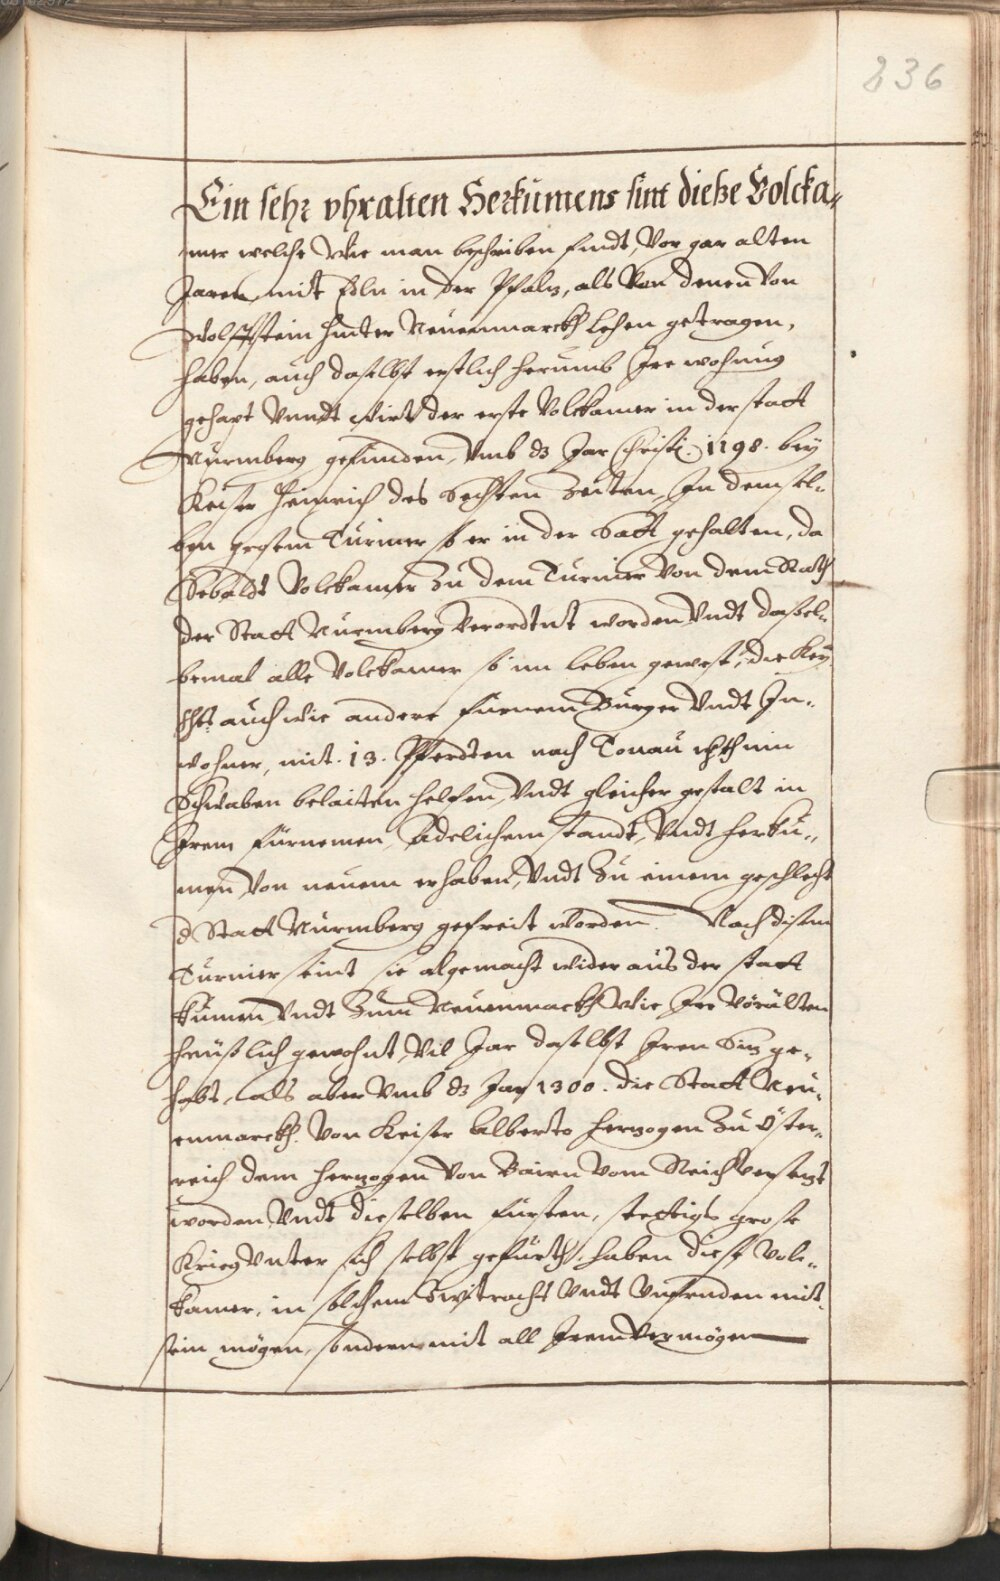 236
Ein sehr vhralten Herkumens sint dieße Volcka-
mer welche wie man beschriben findt, Vor gar alten
Jaren mit Edln in der Pfalz, als Von denen Von
Wolffstein hinter Neuenmarckh lehen getragen,
haben, auch daselbst erstlich herumb Ire wohnung
gehapt Vnndt wirt der erste Volckamer in der statt
Nurmberg gefunden, Vmb dz Jar Christi. 1198. bey
Keiser Heinrich des Sechsten Zeiten, In demsel-
ben grossem Turnier so er in der Statt gehalten, da
Sebaldt Volckamer Zu dem Turnier Von dem Rath
der Statt Nurmberg Verordtnt worden, Vndt daßel-
bemal alle Volckamer so im leben gewest, die Key
Mtt: auch wie andere fürnem Burger Vndt In-
wohner, mit. 13. Pferdten nach Tonau
Schwaben belaiten helfen, Vndt gleicher gestalt in
Irem fürnemen, Adelichem standt, Vndt herku-
men, Von neuem erhaben, Vndt Zu einem geschlecht
d Statt Nurmberg gefreit worden. Nach disem
Turnier seint sie algemacht wider aus der statt
kumen, Vndt Zum Neuenmarckh wie Ire Vorälten
heußlich gewohnt, Vil Jar daselbst Iren Siz ge-
habt, als aber Vmb dz Jar 1300. die Statt Neu-
enmarckh. Von Keiser Alberto herzogen Zu Öster-
reich dem herzogen Von Bairn Vom Reich Versezt
worden, Vndt dieselben fürsten, stettigs grose
Krieg Vnter sich selbst gefürth, haben diese Volc-
kamer, in solchem Zwitracht Vndt Vnfriden nit
sein mögen, sondern mit all Irem Vermögen